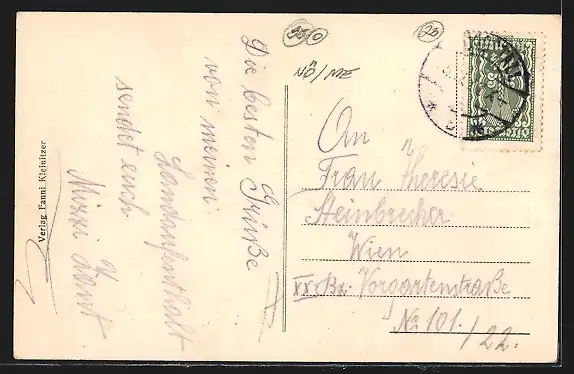 Die besten Grüße
von meinen
Landaufenthalt
sendet euch
Mizzi
Verlag Fanni Kleinitzer
NÖ/ME
An
Frau Theresie
Steinbrecher
Wien
XX Bz. Vorgartenstraße
No 101./22.